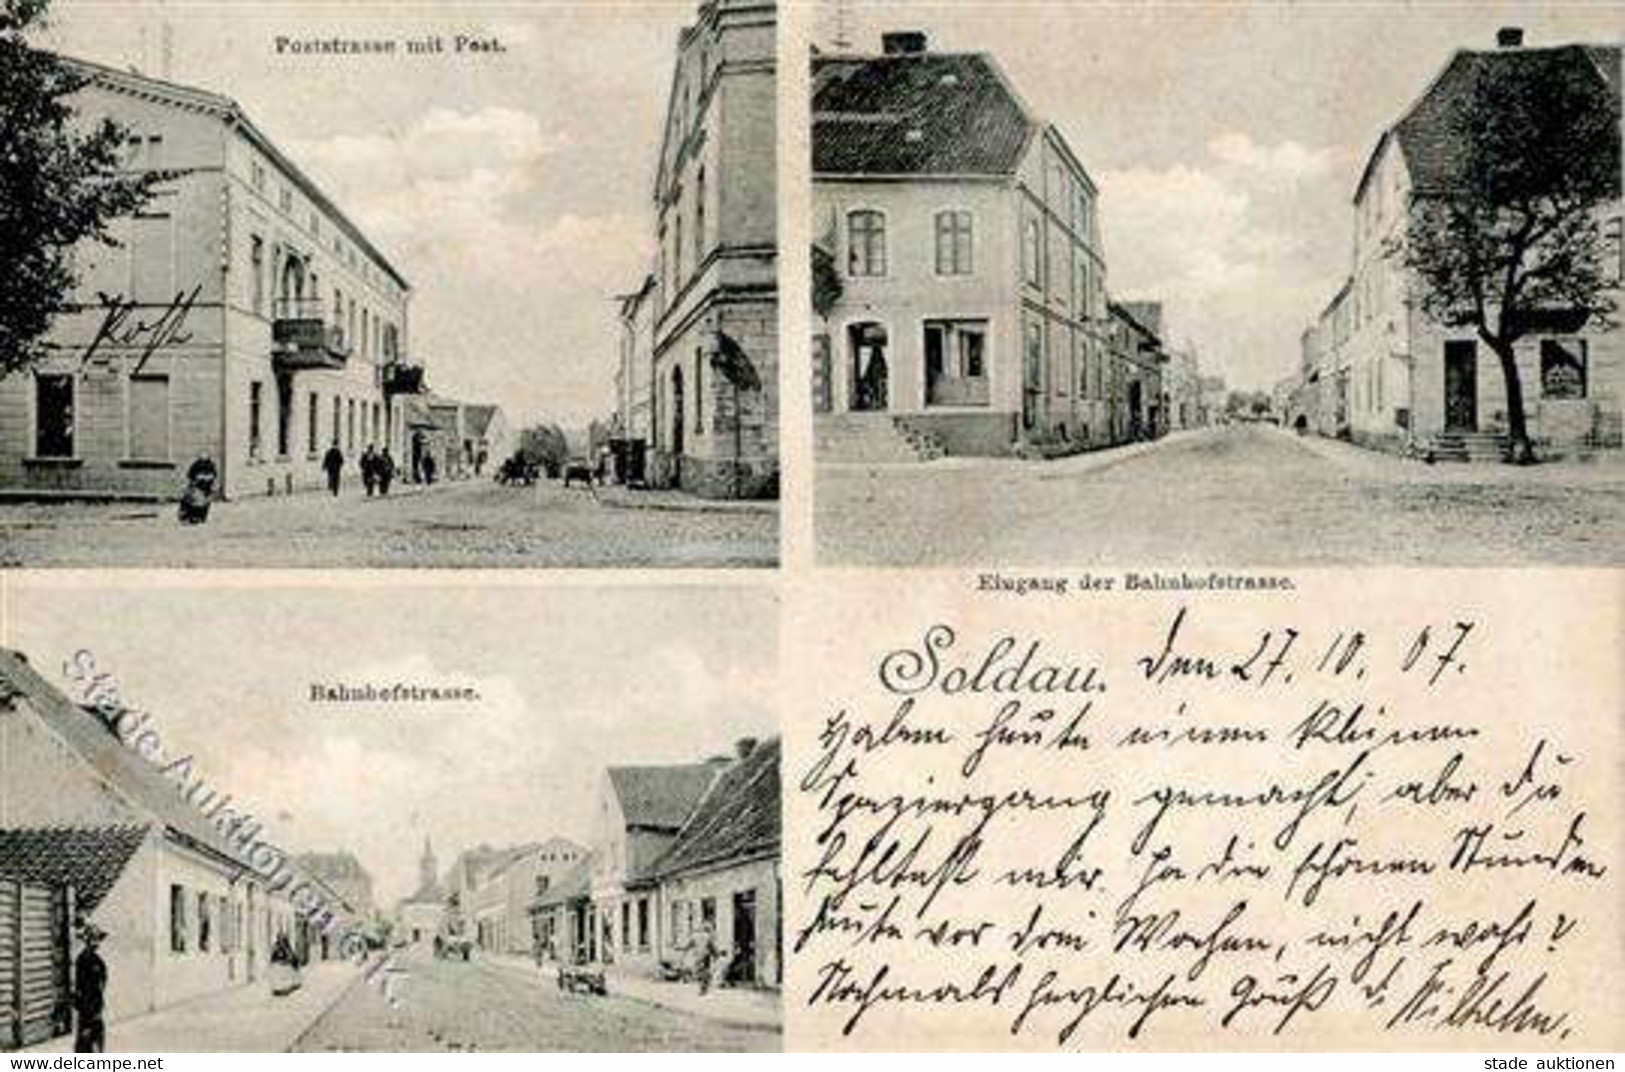 Poststrasse mit Post.
Post
Eingang der Bahnhofstrasse.
Bahnhofstrasse.
Soldau. den 27. 10. 07.
Haben heute einen kleinen
Spaziergang gemacht, aber Du
fehltest mir. Ja die schönen Stunden
heute vor drei Wochen, nicht wahr?
Nochmals herzlichen Gruß d. Wilhelm.
Stade Auktionen e.K.
delcampe.net
stade auktionen